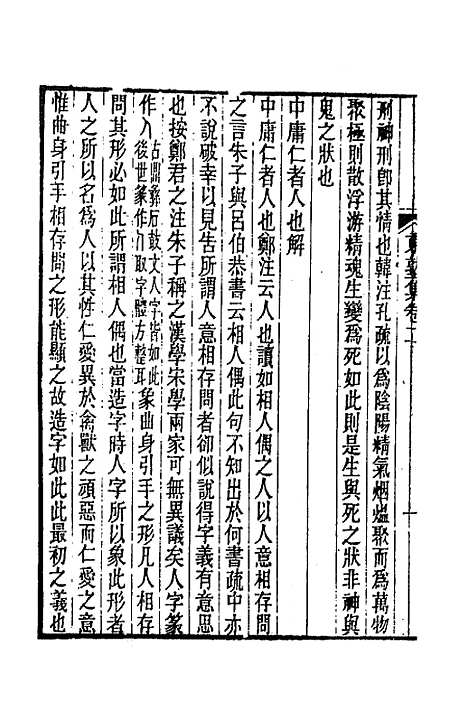 東塾集卷二
十
刑神刑卽其情也韓注孔疏以爲陰陽精氣烟熅聚而爲萬物
聚極則散浮游精魂生變爲死如此則是生與死之狀非神與
鬼之狀也
中庸仁者人也解
中庸仁者人也鄭注云人也讀如相人偶之人以人意相存問
之言朱子與呂伯恭書云相人偶此句不知出於何書疏中亦
不說破幸以見告所謂人意相存問者卻似說得字義有意思
也按鄭君之注朱子稱之漢學宋學兩家可無異議矣人字篆
作入古鼎彝石鼓文人字皆如此後世篆作取字體方整耳象曲身引手之形凡人相存
問其形必如此所謂相人偶也當造字時人字所以象此形者
人之所以名爲人以其性仁愛異於禽獸之頑惡而仁愛之意
惟曲身引手相存問之形能顯之故造字如此此最初之義也